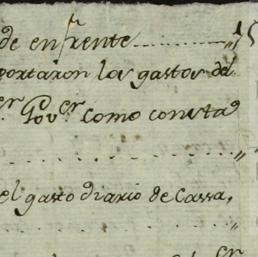 de enfrente ........... „ 15
portaron los gastos del
er Gov.er como consta
.................... „
el gasto diario de Cassa,
.................... „
er